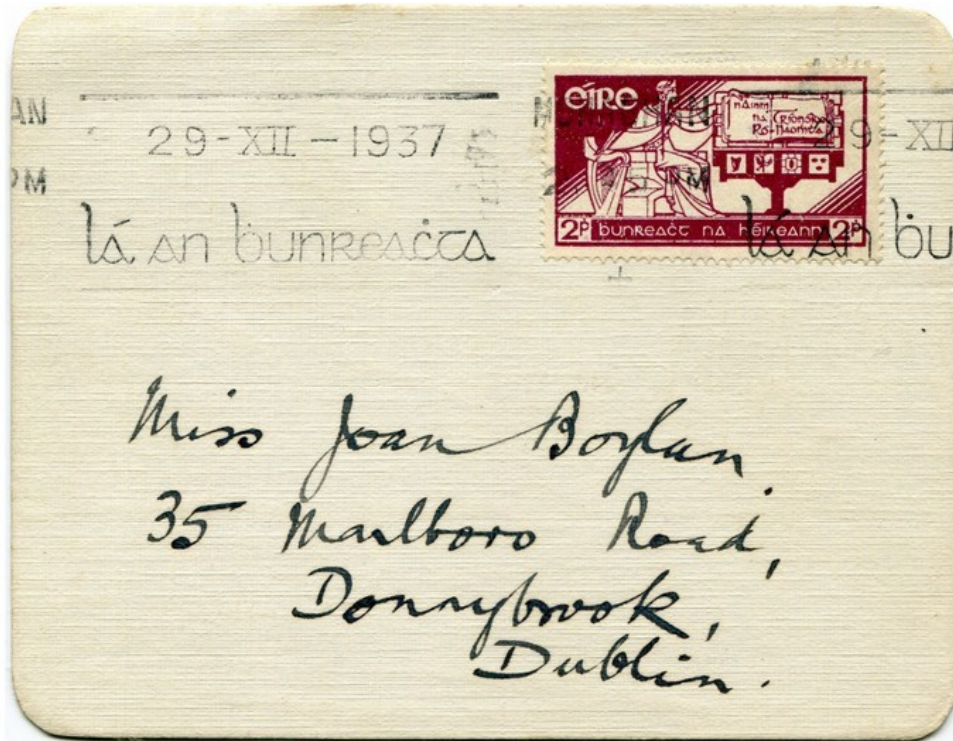 AN
PM
29-XII-1937
lá an ḃunreaċta
éire
i nAinm
na Tríonóide
Ró-Naoṁta
2p bunreaċt na héireann 2p
PM
29-XII
lá an ḃu
Miss Joan Boylan
35 Marlboro Road,
Donnybrook,
Dublin.